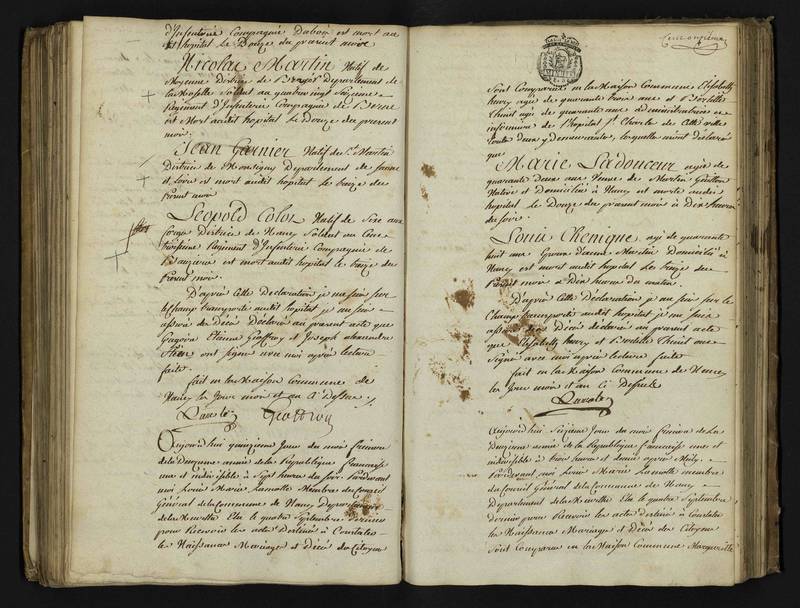 d'Infanterie Compagnie Dubois est mort au
dit hopital le Douze du present mois
Nicolas Martin Natif de
Moyenne District de Departement de
la Moselle Soldat au quatre vingt Seizieme
Regiment d'Infanterie Compagnie de
est Mort audit hopital le Douze du present
mois
Jean Garnier Natif de St Martin
District de Departement de
et Loire est mort audit hopital le treize du
present mois
Leopold Colos Natif de Six aux
District de Nancy Soldat au
Regiment d'Infanterie Compagnie de
est mort audit hopital le treize du
present mois
D'après Cette Declaration je me suis sur
le champ transporté audit hopital je me suis
assuré du Decès Déclaré au present acte que
Etienne Geoffroy et Joseph alexandre
ont signé avec moi après lecture
faite
fait en la Maison Commune de
Nancy le Jour mois et an Ci Dessus
Geoffroy
Aujourd'hui quinzieme Jour du mois frimaire
de la Deuxieme année de la Republique francaise
une et indivisible à Sept heures du soir Pardevant
moi Louis Marie Lamotte Membre du Conseil
Général de la Commune de Nancy Departement
de la Meurthe Elu le quatre Septembre dernier
pour Recevoir les actes Destinés à Constater
les Naissances Mariages et Décès des Citoyens
Sont Comparus en la Maison Commune Elisabeth
henry agée de quarante trois ans et
agée de quarante ans
infirmiere de l'hopital St Charles de Cette ville
toute deux y demeurantes, lesquelles m'ont déclaré
que
Marie Ladouceur agée de
quarante deux ans Veuve de Martin
Native et Domiciliée à Nancy est morte audit
hopital le Douze du present mois à Dix heures
du soir
Louis Chenique agé de quarante
huit ans Epoux d'anne Martin Domicilié à
Nancy est mort audit hopital le treize du
present mois à Dix heures du matin
D'après Cette Déclaration je me suis sur le
Champ transporté audit hopital je me suis
assuré des Décès déclaré au present acte
que Elisabeth henry et
Signé avec moi après lecture faite
fait en la Maison Commune de Nancy
le Jour mois et an Ci Dessus
Aujourd'hui Seizieme Jour du mois frimaire de La
Deuxieme année de la Republique francaise une et
indivisible à trois heures et demie après Midy
Pardevant moi Louis Marie Lamotte membre
du Conseil Général de la Commune de Nancy
Departement de la Meurthe Elu le quatre Septembre
dernier pour Recevoir les actes destinés à Constater
les Naissances Mariages et Décès des Citoyens
Sont Comparus en la Maison Commune Marguerite